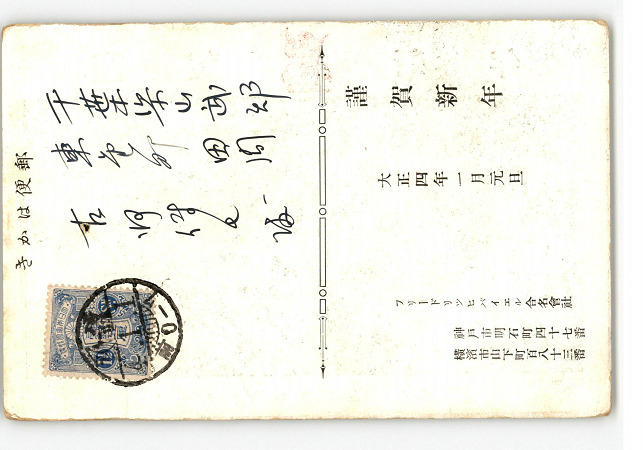 きかは便郵
千葉県山武郡
東金町 田間
謹賀新年
大正四年一月元旦
フリードリッヒバイエル合名會社
神戸市明石町四十七番
横濱市山下町百八十三番